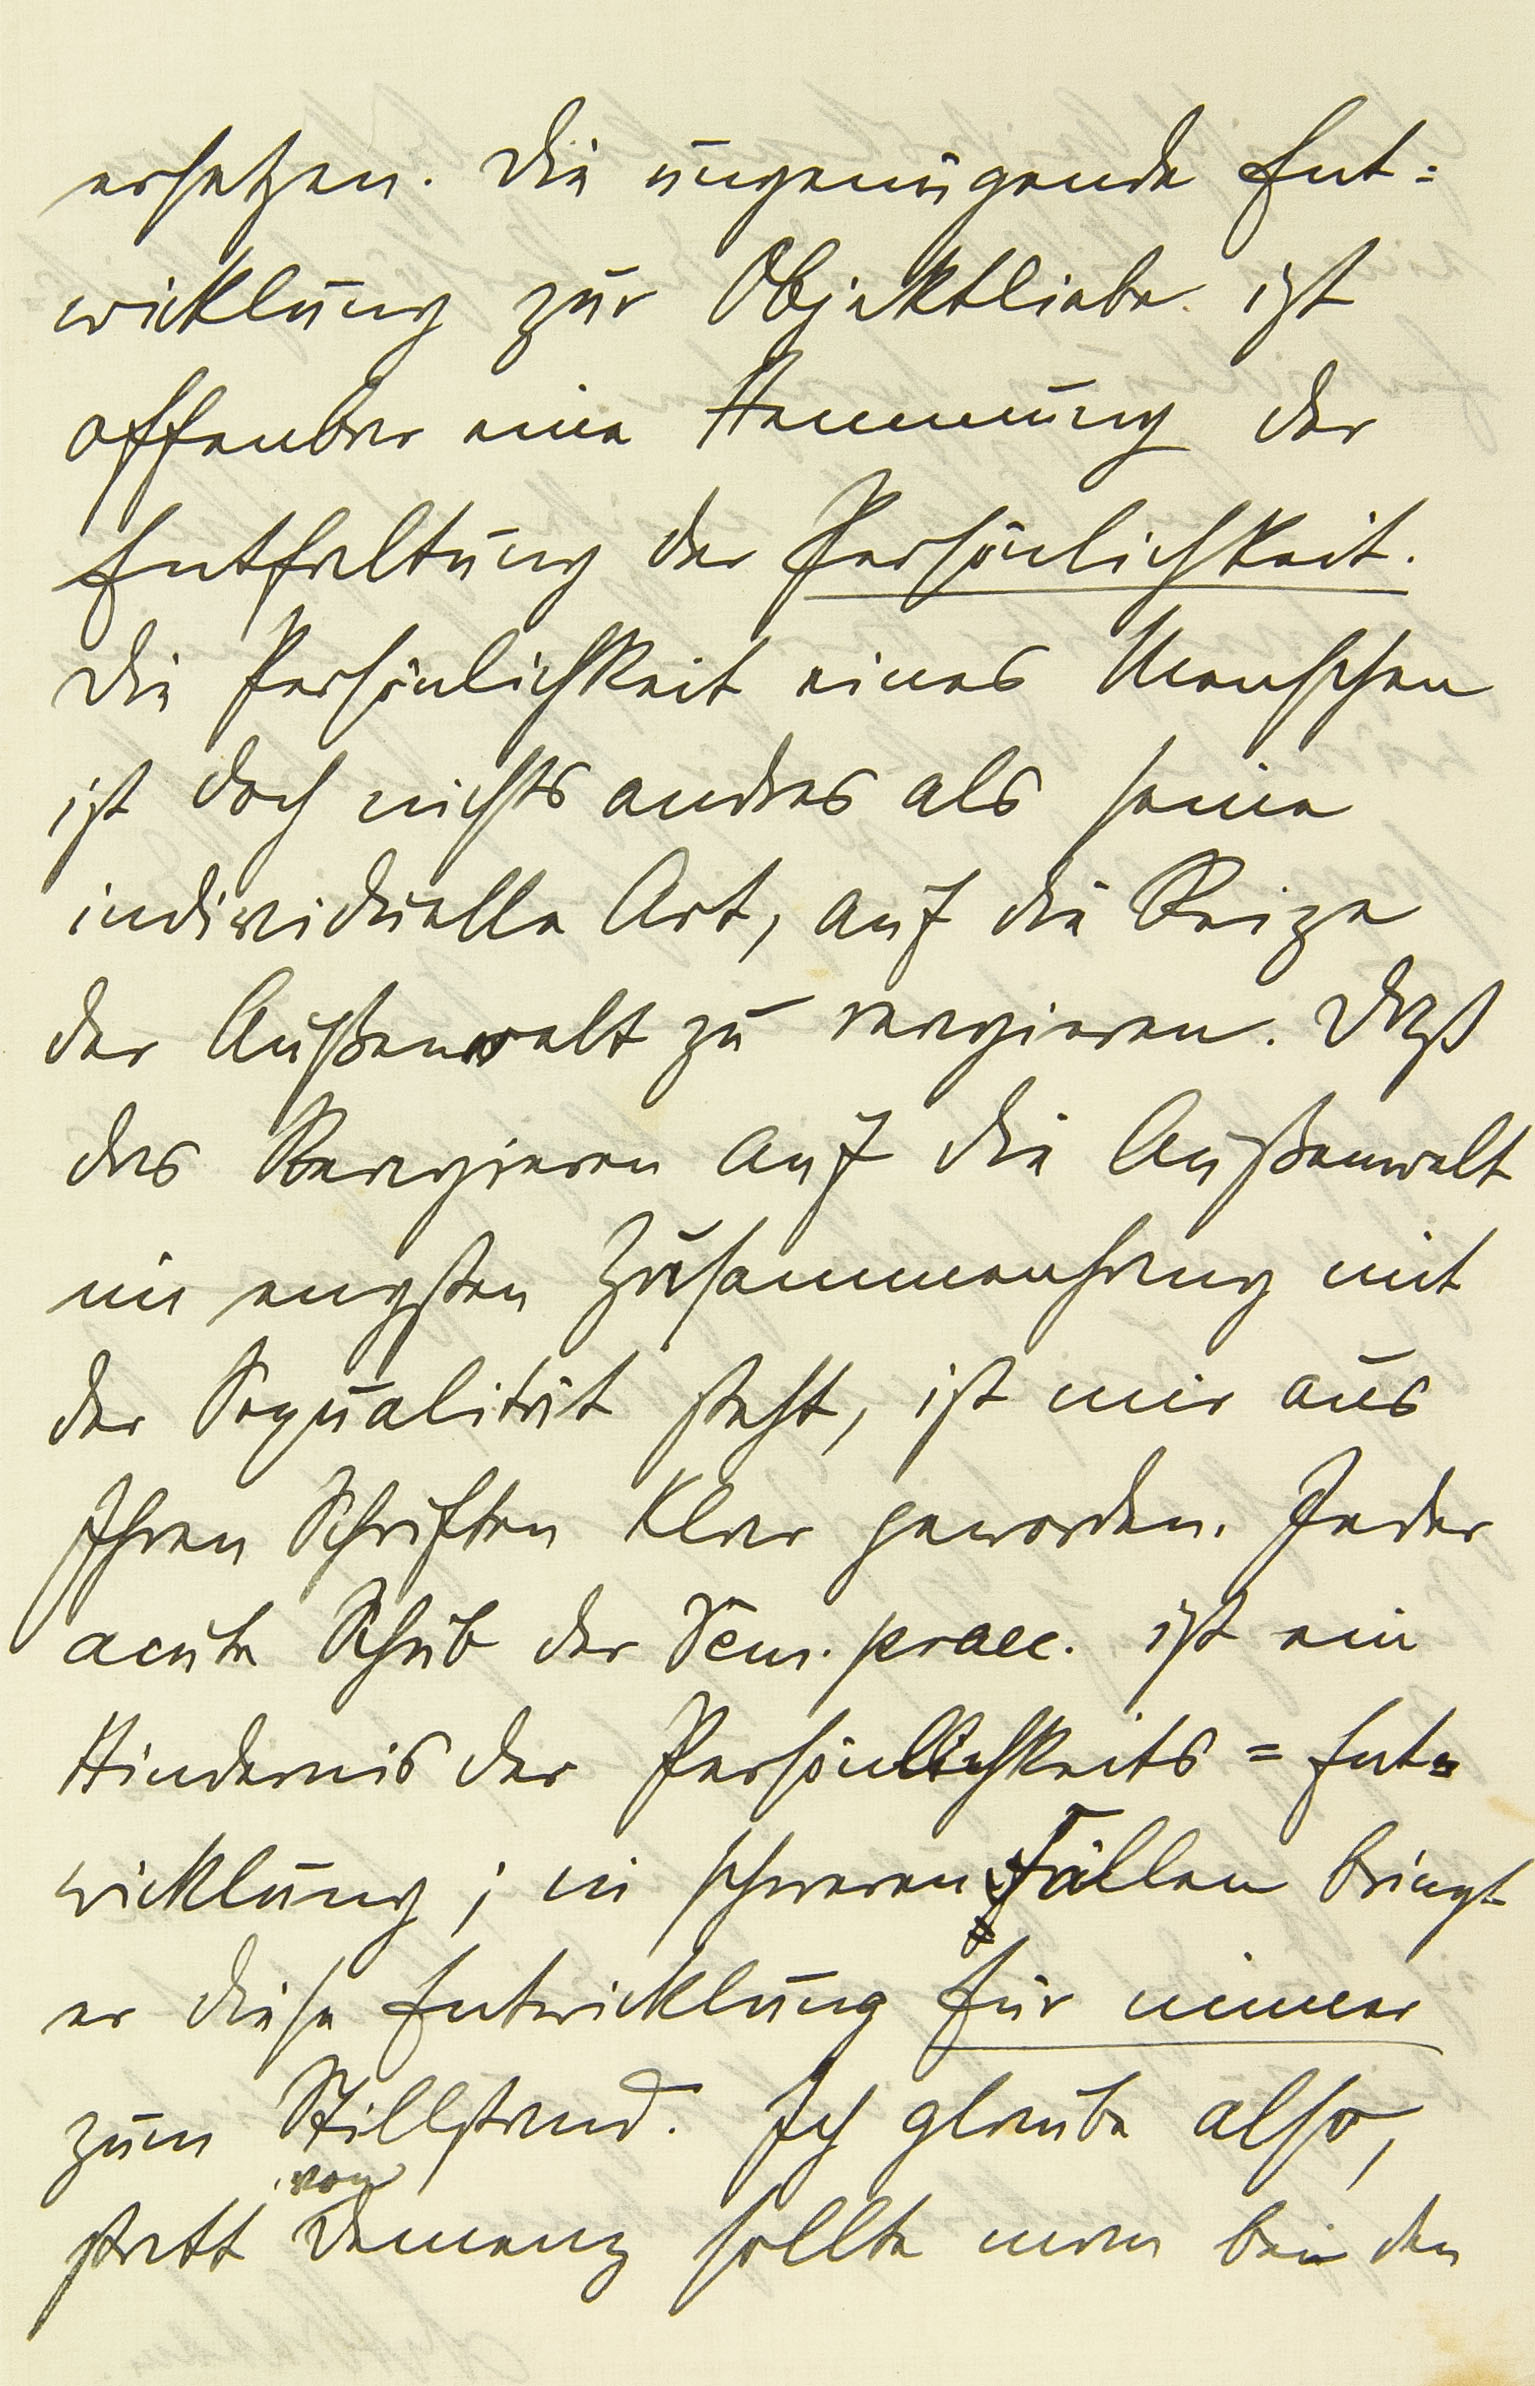 ersetzen. Die ungenügende Ent=
wicklung zur Objektliebe ist
offenbar eine Hemmung der
Entfaltung der Persönlichkeit.
Die Persönlichkeit eines Menschen
ist doch nichts andres als seine
individuelle Art, auf die Reize
der Außenwelt zu reagieren. Daß
das Reagieren auf die Außenwelt
im engsten Zusammenhang mit
der Sexualität steht, ist mir aus
Ihren Schriften klar geworden. Jeder
acute Schub der Dem. praec. ist ein
Hindernis der Persönlichkeits=Ent=
wicklung; in schweren Fällen bringt
er diese Entwicklung für immer
zum Stillstand. Ich glaube also,
von
statt Demenz sollte man bei den